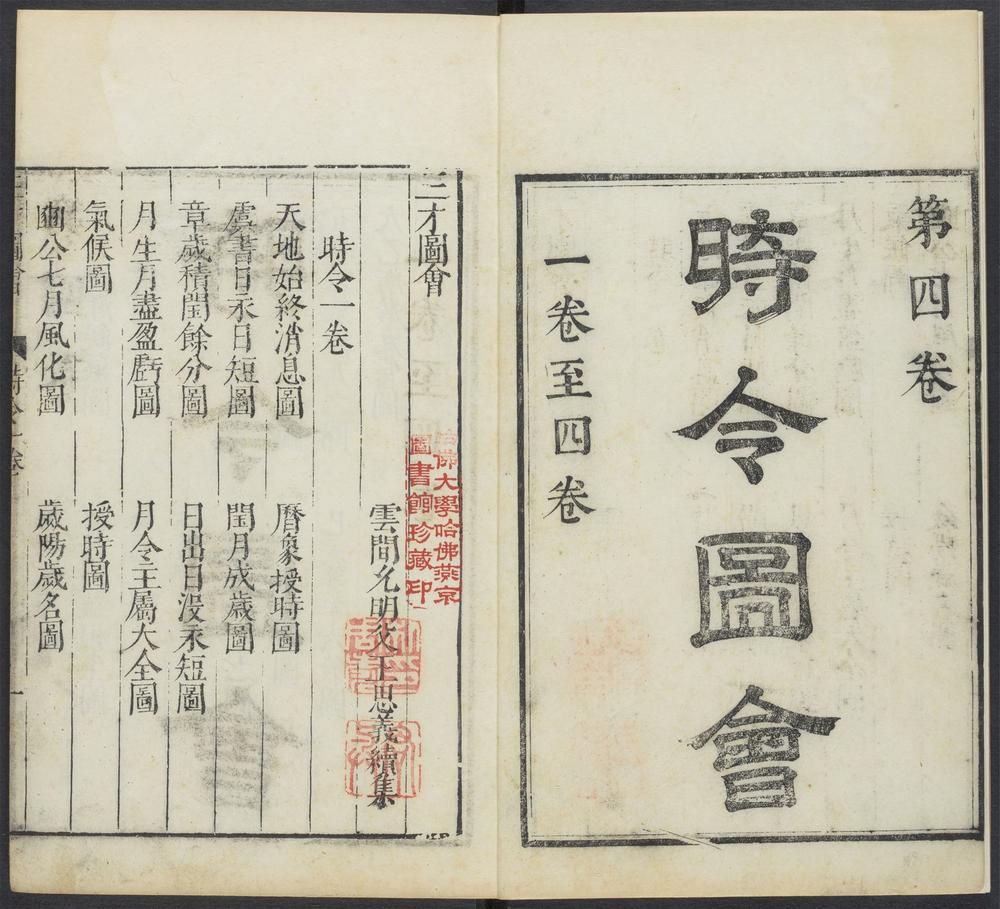 第四卷
時令圖會
一卷至四卷
三才圖會
雲間允明父王思義續集
哈佛大學哈佛燕京
圖書館珍藏印
時令一卷
天地始終消息圖
曆象授時圖
虞書日永日短圖
閏月成歲圖
章歲積閏餘分圖
日出日没永短圖
月生月盡盈虧圖
月令主屬大全圖
氣候圖
授時圖
豳公七月風化圖
歲陽歲名圖
三才圖會
時令一卷
一